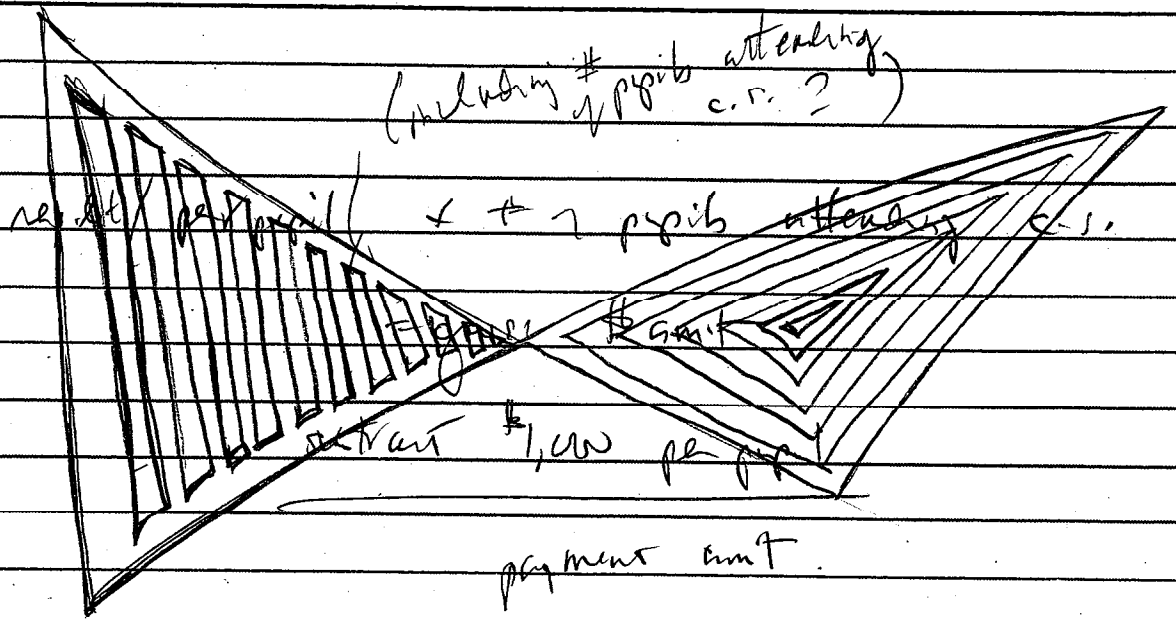 (including # of pupils attending c.s.?)
per pupil x # of pupils attending c.s.
= gross $ amt
subtract $1,000 per pup
payment amt.